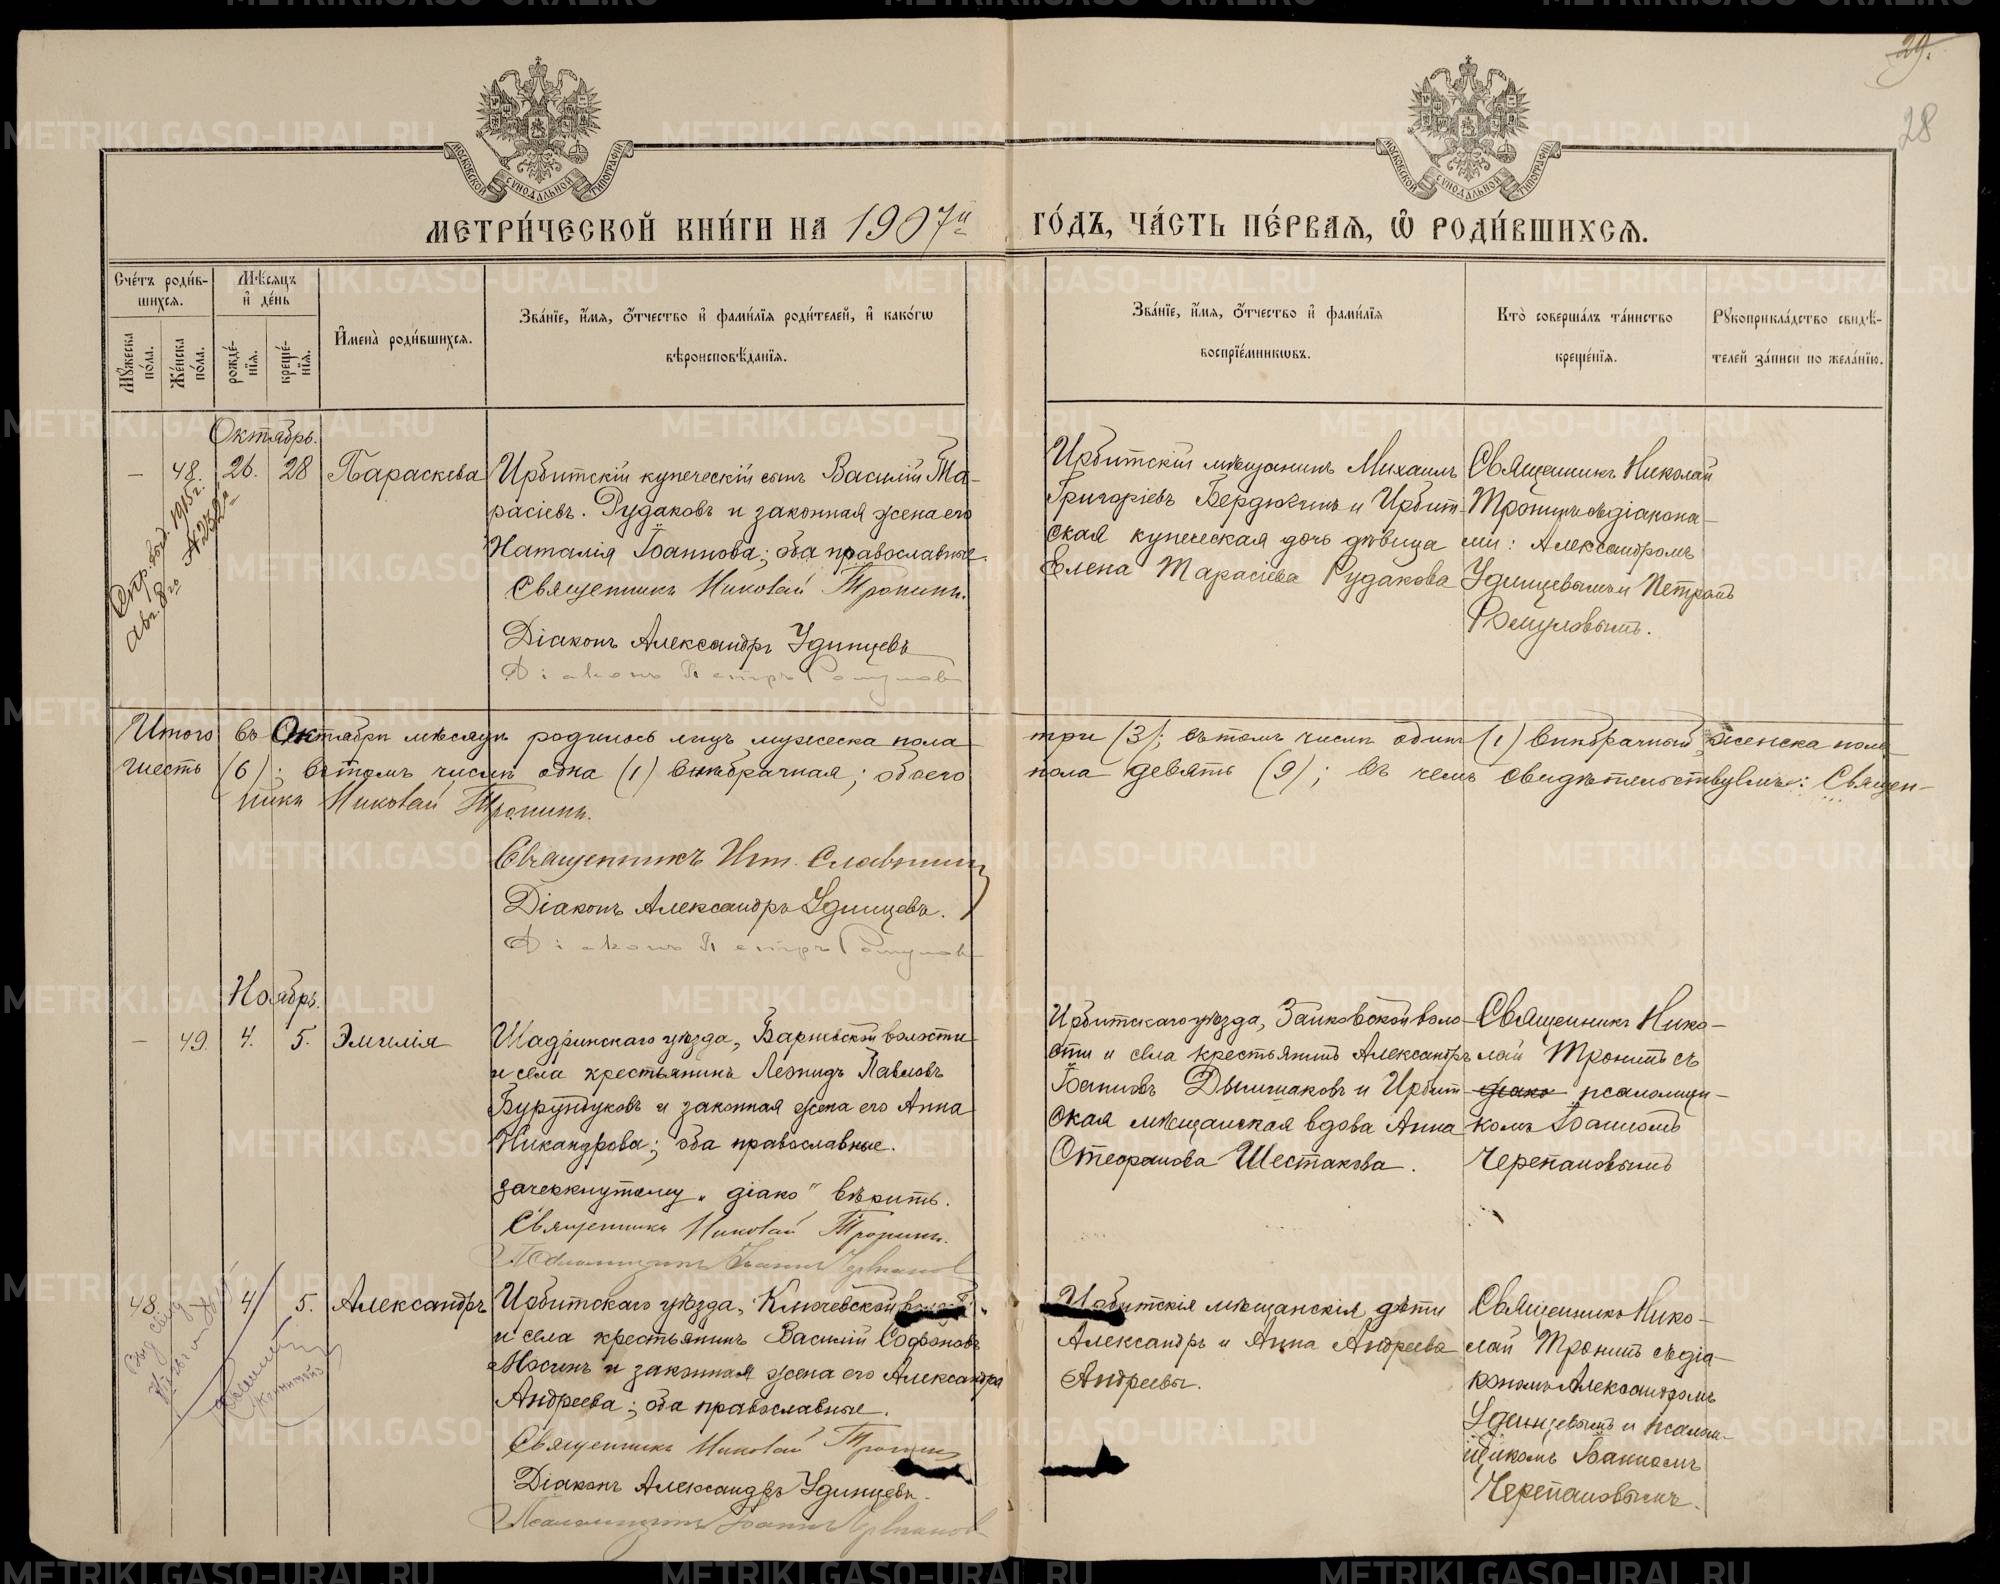 29.
28
МОСКОВСКОЙ СѴНОДАЛЬНОЙ ТИПОГРАФІИ
МОСКОВСКОЙ СѴНОДАЛЬНОЙ ТИПОГРАФІИ
МЕТРИ́ЧЕСКОЙ КНИ́ГИ НА 1907й ГО́ДЪ, ЧА́СТЬ ПЕ́РВАѦ, Ѡ҆ РОДИ́ВШИХСѦ.
Сче́тъ роди́в-
шихсѧ.
Мѹ́жеска по́ла.
Же́нска по́ла.
Мѣ́сѧцъ
и҆ де́нь
рожде́-
нїѧ.
креще́-
нїѧ.
И҆мена̀ роди́вшихсѧ.
Зва́нїе, и҆́мѧ, ѻ҆́тчество и҆ фами́лїѧ роди́телей, и҆ како́гѡ
вѣроисповѣ́данїѧ.
Зва́нїе, и҆́мѧ, ѻ҆́тчество и҆ фами́лїѧ
воспрїе́мникѡвъ.
Кто̀ соверша́лъ та́инство
креще́нїѧ.
Рѹкоприкла́дство свидѣ́-
телей за́писи по жела́нїю.
Октябрь.
— 48. 26. 28 Параскева
Ирбитскій купеческій сынъ Василій Та-
расіевъ Рудаковъ и законная жена его
Наталія Іоаннова; оба православные.
Священникъ Николай Тронинъ.
Діаконъ Александръ Удинцевъ
Діаконъ Петръ Ромуловъ
Ирбитскій мѣщанинъ Михаилъ
Григоріевъ Бердюгинъ и Ирбит-
ская купеческая дочь дѣвица
Елена Тарасіева Рудакова
Священникъ Николай
Тронинъ съ діакона-
ми: Александромъ
Удинцевымъ и Петромъ
Ромуловымъ.
1915 г.
Итого въ Октябрѣ мѣсяцѣ родилось лицъ мужеска пола три (3); въ томъ числѣ одинъ (1) внѣбрачный; женска пола
шесть (6); въ томъ числѣ одна (1) внѣбрачная; обоего пола девять (9); въ чемъ свидѣтельствуемъ: Священ-
никъ Николай Тронинъ.
Священникъ Игн. Славнинъ
Діаконъ Александръ Удинцевъ.
Діаконъ Петръ Ромуловъ
Ноябрь.
— 49. 4. 5. Эмилія
Шадринскаго уѣзда, Барневской волости
и села крестьянинъ Леонидъ Павловъ
Бурундуковъ и законная жена его Анна
Никандрова; оба православные.
зачеркнутому „діако" вѣрить.
Священникъ Николай Тронинъ.
Псаломщикъ Іоаннъ Черпановъ
Ирбитскаго уѣзда, Зайковской воло-
сти и села крестьянинъ Александръ
Іоанновъ Дымшаковъ и Ирбит-
ская мѣщанская вдова Анна
Стефанова Шестакова.
Священникъ Нико-
лай Тронинъ съ
діако псаломщи-
комъ Іоанномъ
Черепановымъ
48. 4 5. Александръ
Ирбитскаго уѣзда, Ключевской волости
и села крестьянинъ Василій Софроновъ
Мосинъ и законная жена его Александра
Андреева; оба православные.
Священникъ Николай Тронинъ
Діаконъ Александръ Удинцевъ.
Псаломщикъ Іоаннъ Черпановъ
Ирбитскія мѣщанскія дѣти
Александръ и Анна Андреева
Андреевы.
Священникъ Нико-
лай Тронинъ съ діа-
кономъ Александромъ
Удинцевымъ и псалом-
щикомъ Іоанномъ
Черепановымъ.
METRIKI.GASO-URAL.RU